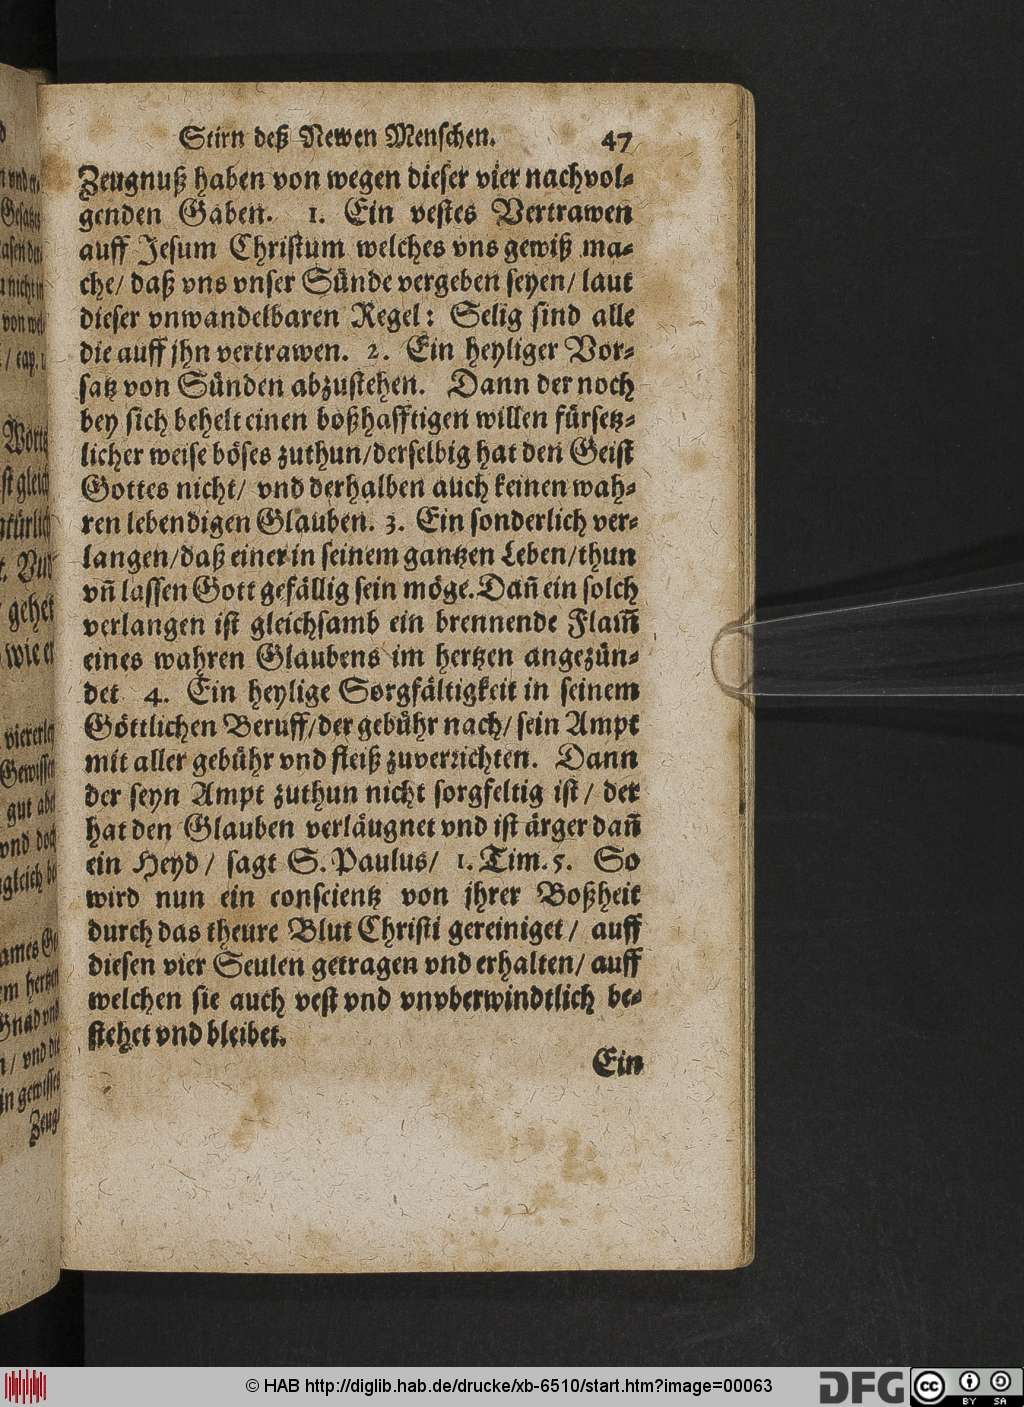 Stirn deß Newen Menschen. 47
Zeugnuß haben von wegen dieser vier nachvol-
genden Gaben. 1. Ein vestes Vertrawen
auff Jesum Christum welches vns gewiß ma-
che/ daß vns vnser Sünde vergeben seyen/ laut
dieser vnwandelbaren Regel: Selig sind alle
die auff jhn vertrawen. 2. Ein heyliger Vor-
satz von Sünden abzustehen. Dann der noch
bey sich behelt einen boßhafftigen willen fürsetz-
licher weise böses zuthun/derselbig hat den Geist
Gottes nicht/ vnd derhalben auch keinen wah-
ren lebendigen Glauben. 3. Ein sonderlich ver-
langen/daß einer in seinem gantzen Leben/thun
vn̄ lassen Gott gefällig sein möge. Dan̄ ein solch
verlangen ist gleichsamb ein brennende Flam̄
eines wahren Glaubens im hertzen angezün-
det 4. Ein heylige Sorgfältigkeit in seinem
Göttlichen Beruff/der gebühr nach/ sein Ampt
mit aller gebühr vnd fleiß zuverrichten. Dann
der seyn Ampt zuthun nicht sorgfeltig ist/ der
hat den Glauben verläugnet vnd ist ärger dan̄
ein Heyd/ sagt S. Paulus/ 1. Tim. 5. So
wird nun ein conscientz von jhrer Boßheit
durch das theure Blut Christi gereiniget/ auff
diesen vier Seulen getragen vnd erhalten/ auff
welchen sie auch vest vnd vnvberwindtlich be-
stehet vnd bleibet.
Ein
© HAB http://diglib.hab.de/drucke/xb-6510/start.htm?image=00063
DFG
cc BY SA